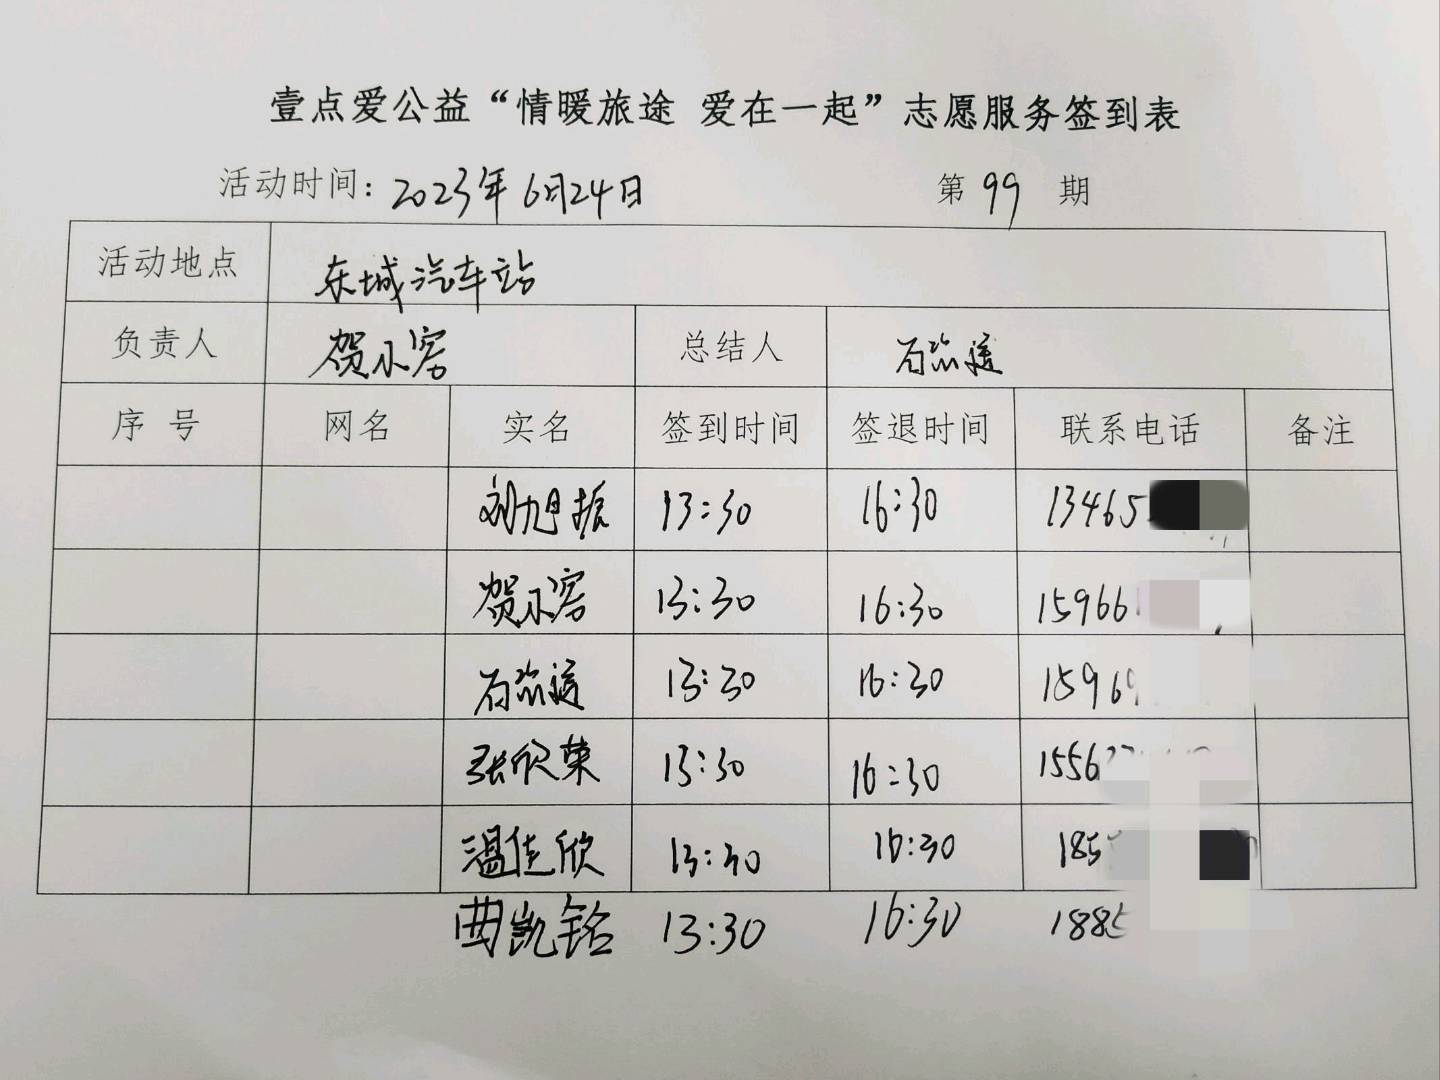 壹点爱公益“情暖旅途 爱在一起”志愿服务签到表
活动时间：2023年6月24日 第99期
活动地点 东城汽车站
负责人 贺小容 总结人 石
序号 网名 实名 签到时间 签退时间 联系电话 备注
刘旭振 13:30 16:30 13465
贺小容 13:30 16:30 15966
石 13:30 16:30 15969
张欣荣 13:30 16:30 1556
温佳欣 13:30 16:30 185
曲凯铭 13:30 16:30 1885